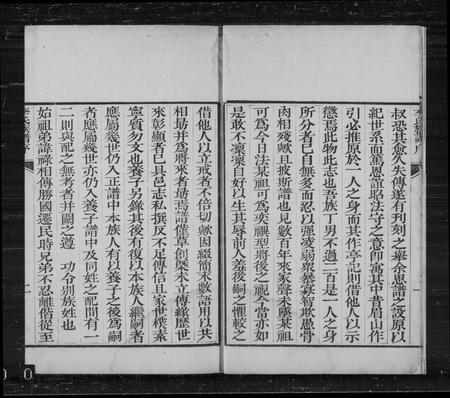 叔恐其愈久失傳遂有刊刻之舉余思譜之設原以
紀世系而篤恩誼昭法守之意即寓其中昔眉山作
引必推原於一人之身而其作亭記則借他人以示
懲焉此物此志也吾族丁男不過二百是一人之身
所分者已自無多而忍以強凌弱眾暴寡智欺愚骨
肉相殘歟且披斯譜也見數百年來家聲未墜某祖
可為今日法某祖可為奕禩型將後之視今當亦如
是敢不凜凜自好以生其辱前人羞後嗣之懼較之
借他人以立戒者不倍切歟因綴簡末數語用以共
相勗并為將來者勗焉譜僅草創槩未立傳緣歷世
來彰顯者已具邑志餘撰反不足傳信且家世樸素
寧質勿文也養子另錄其後有復以本族人繼嗣者
應屬幾世仍入正譜中本族人有以養子之後為嗣
者應屬幾世亦仍入養子譜中及同姓之配間有一
二則與配之無考者并闕之遵 功令別族姓也
始祖弟諱祿相傳勝國遷民時兄弟不忍離偕從至